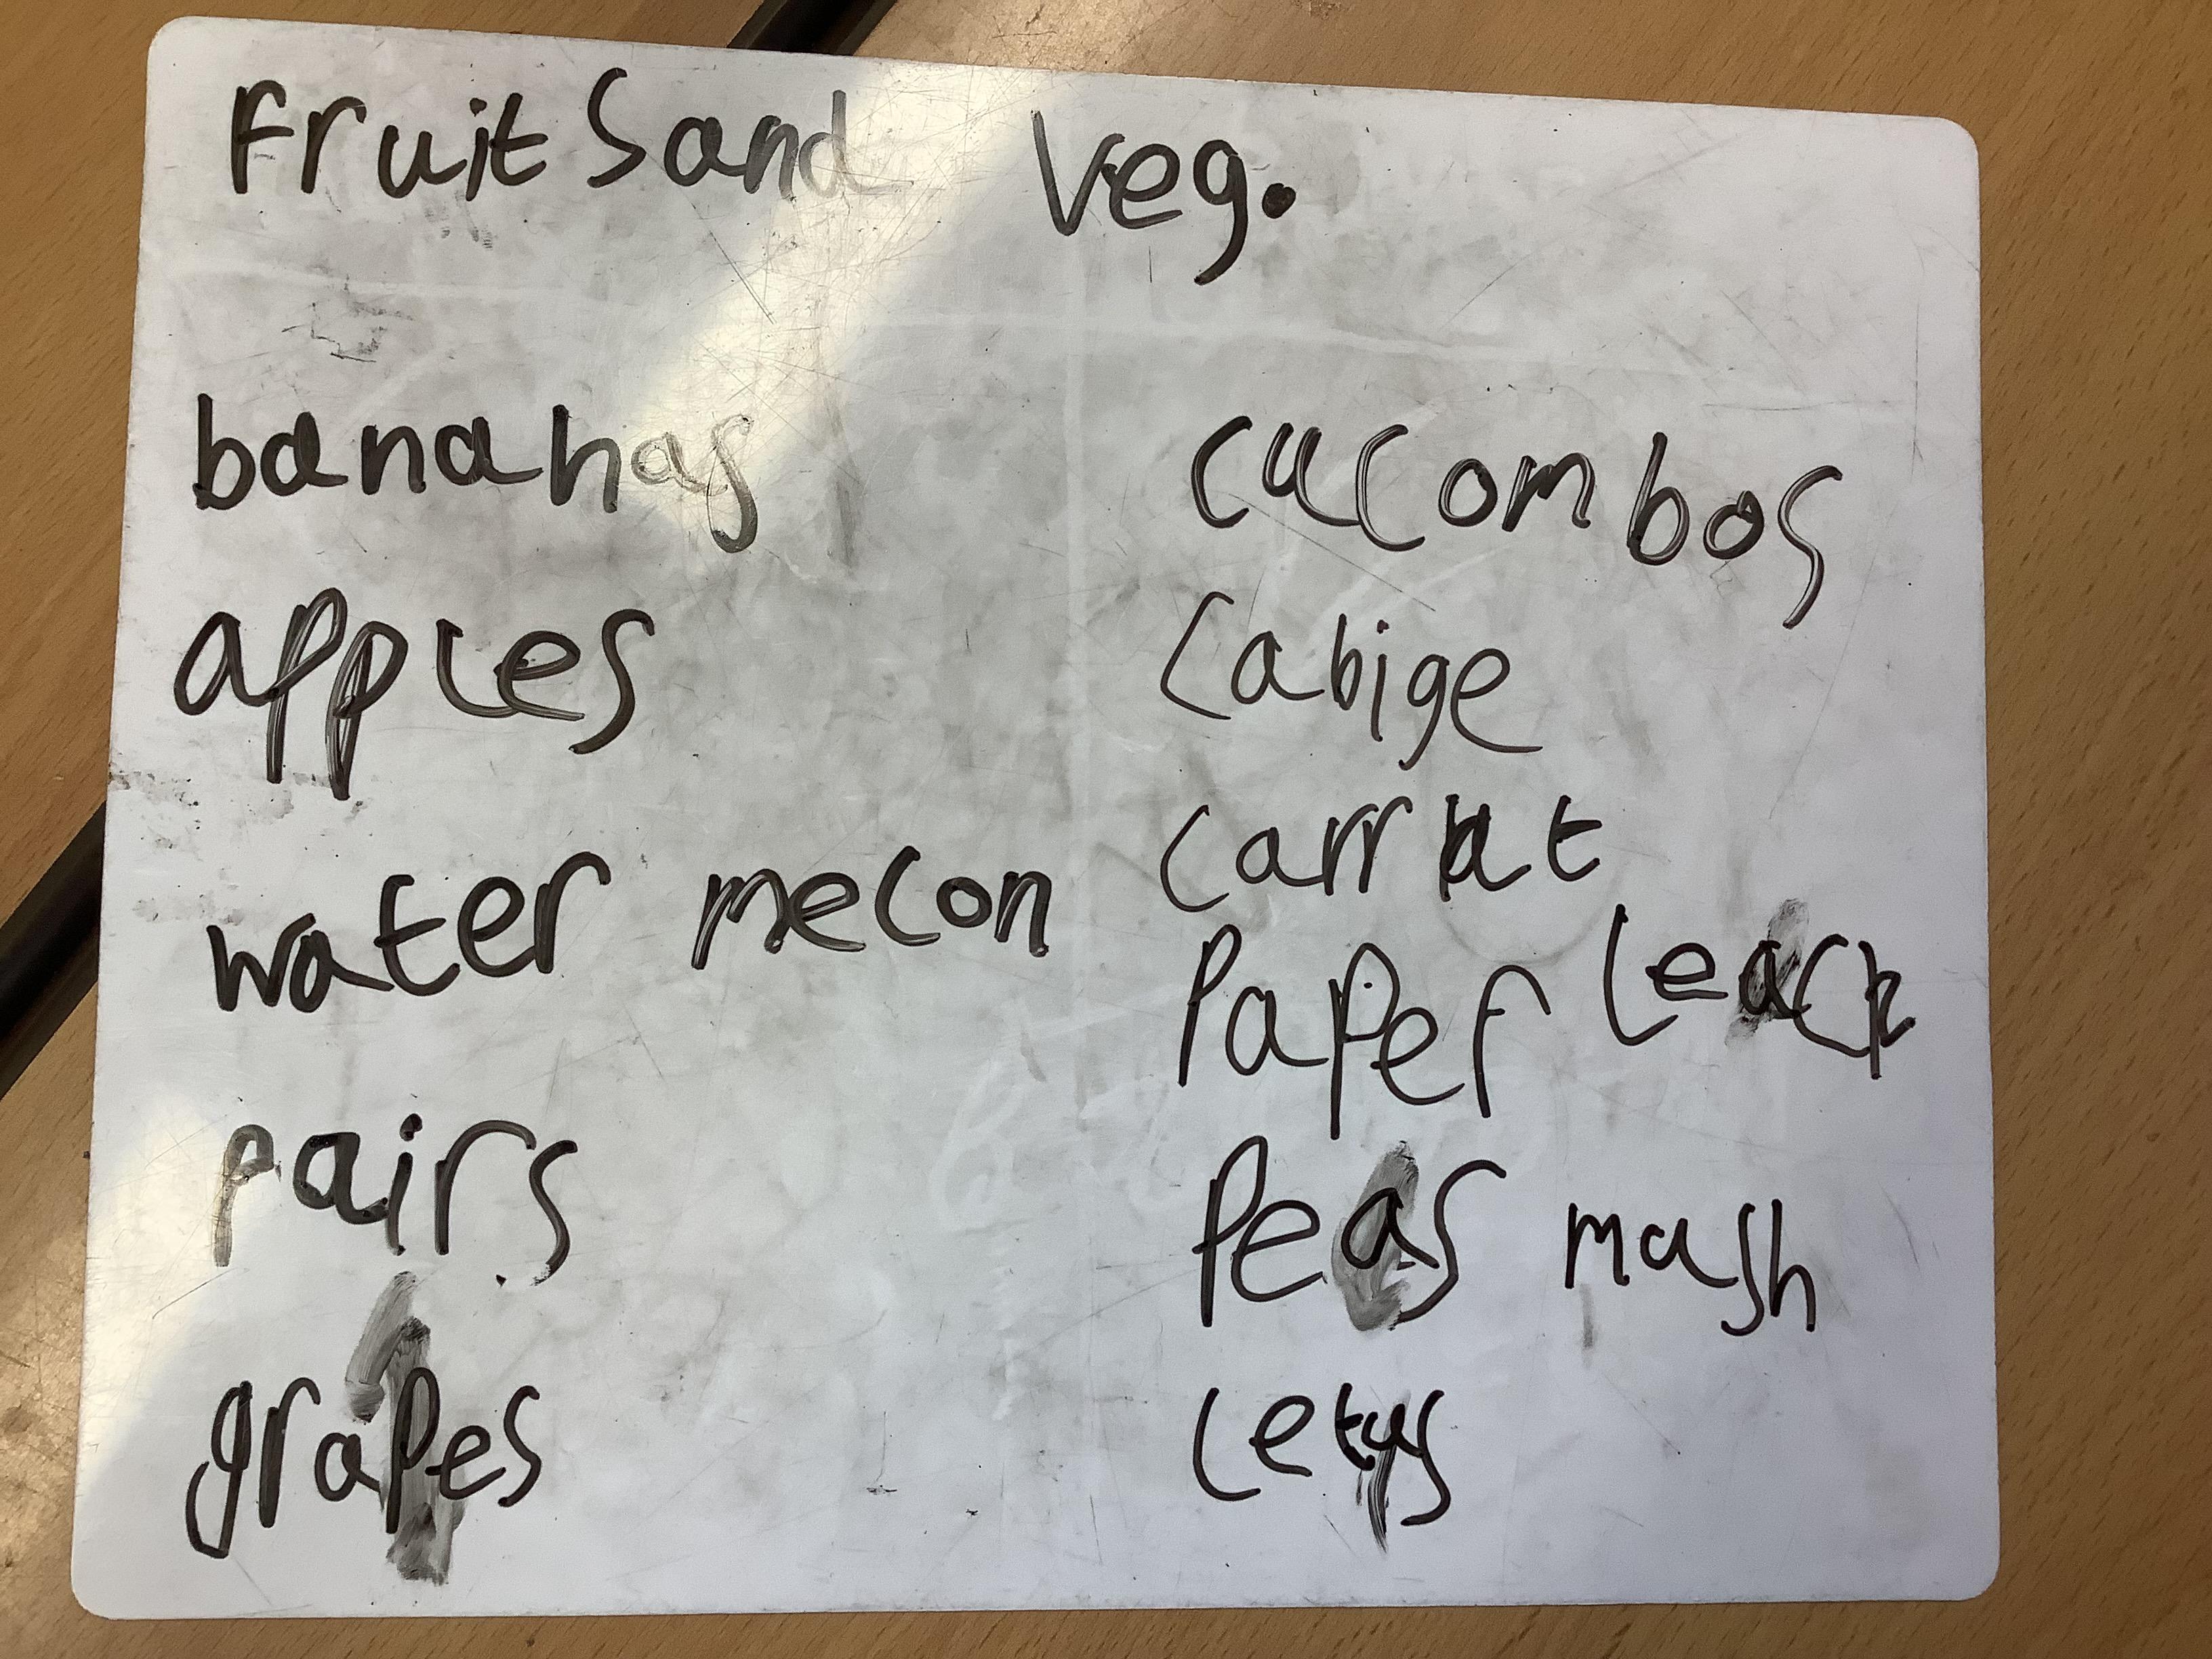 Fruits and veg.
bananas
apples
water melon
pairs
grapes
cucombos
cabige
carrat
Paper leack
Peas mash
letus